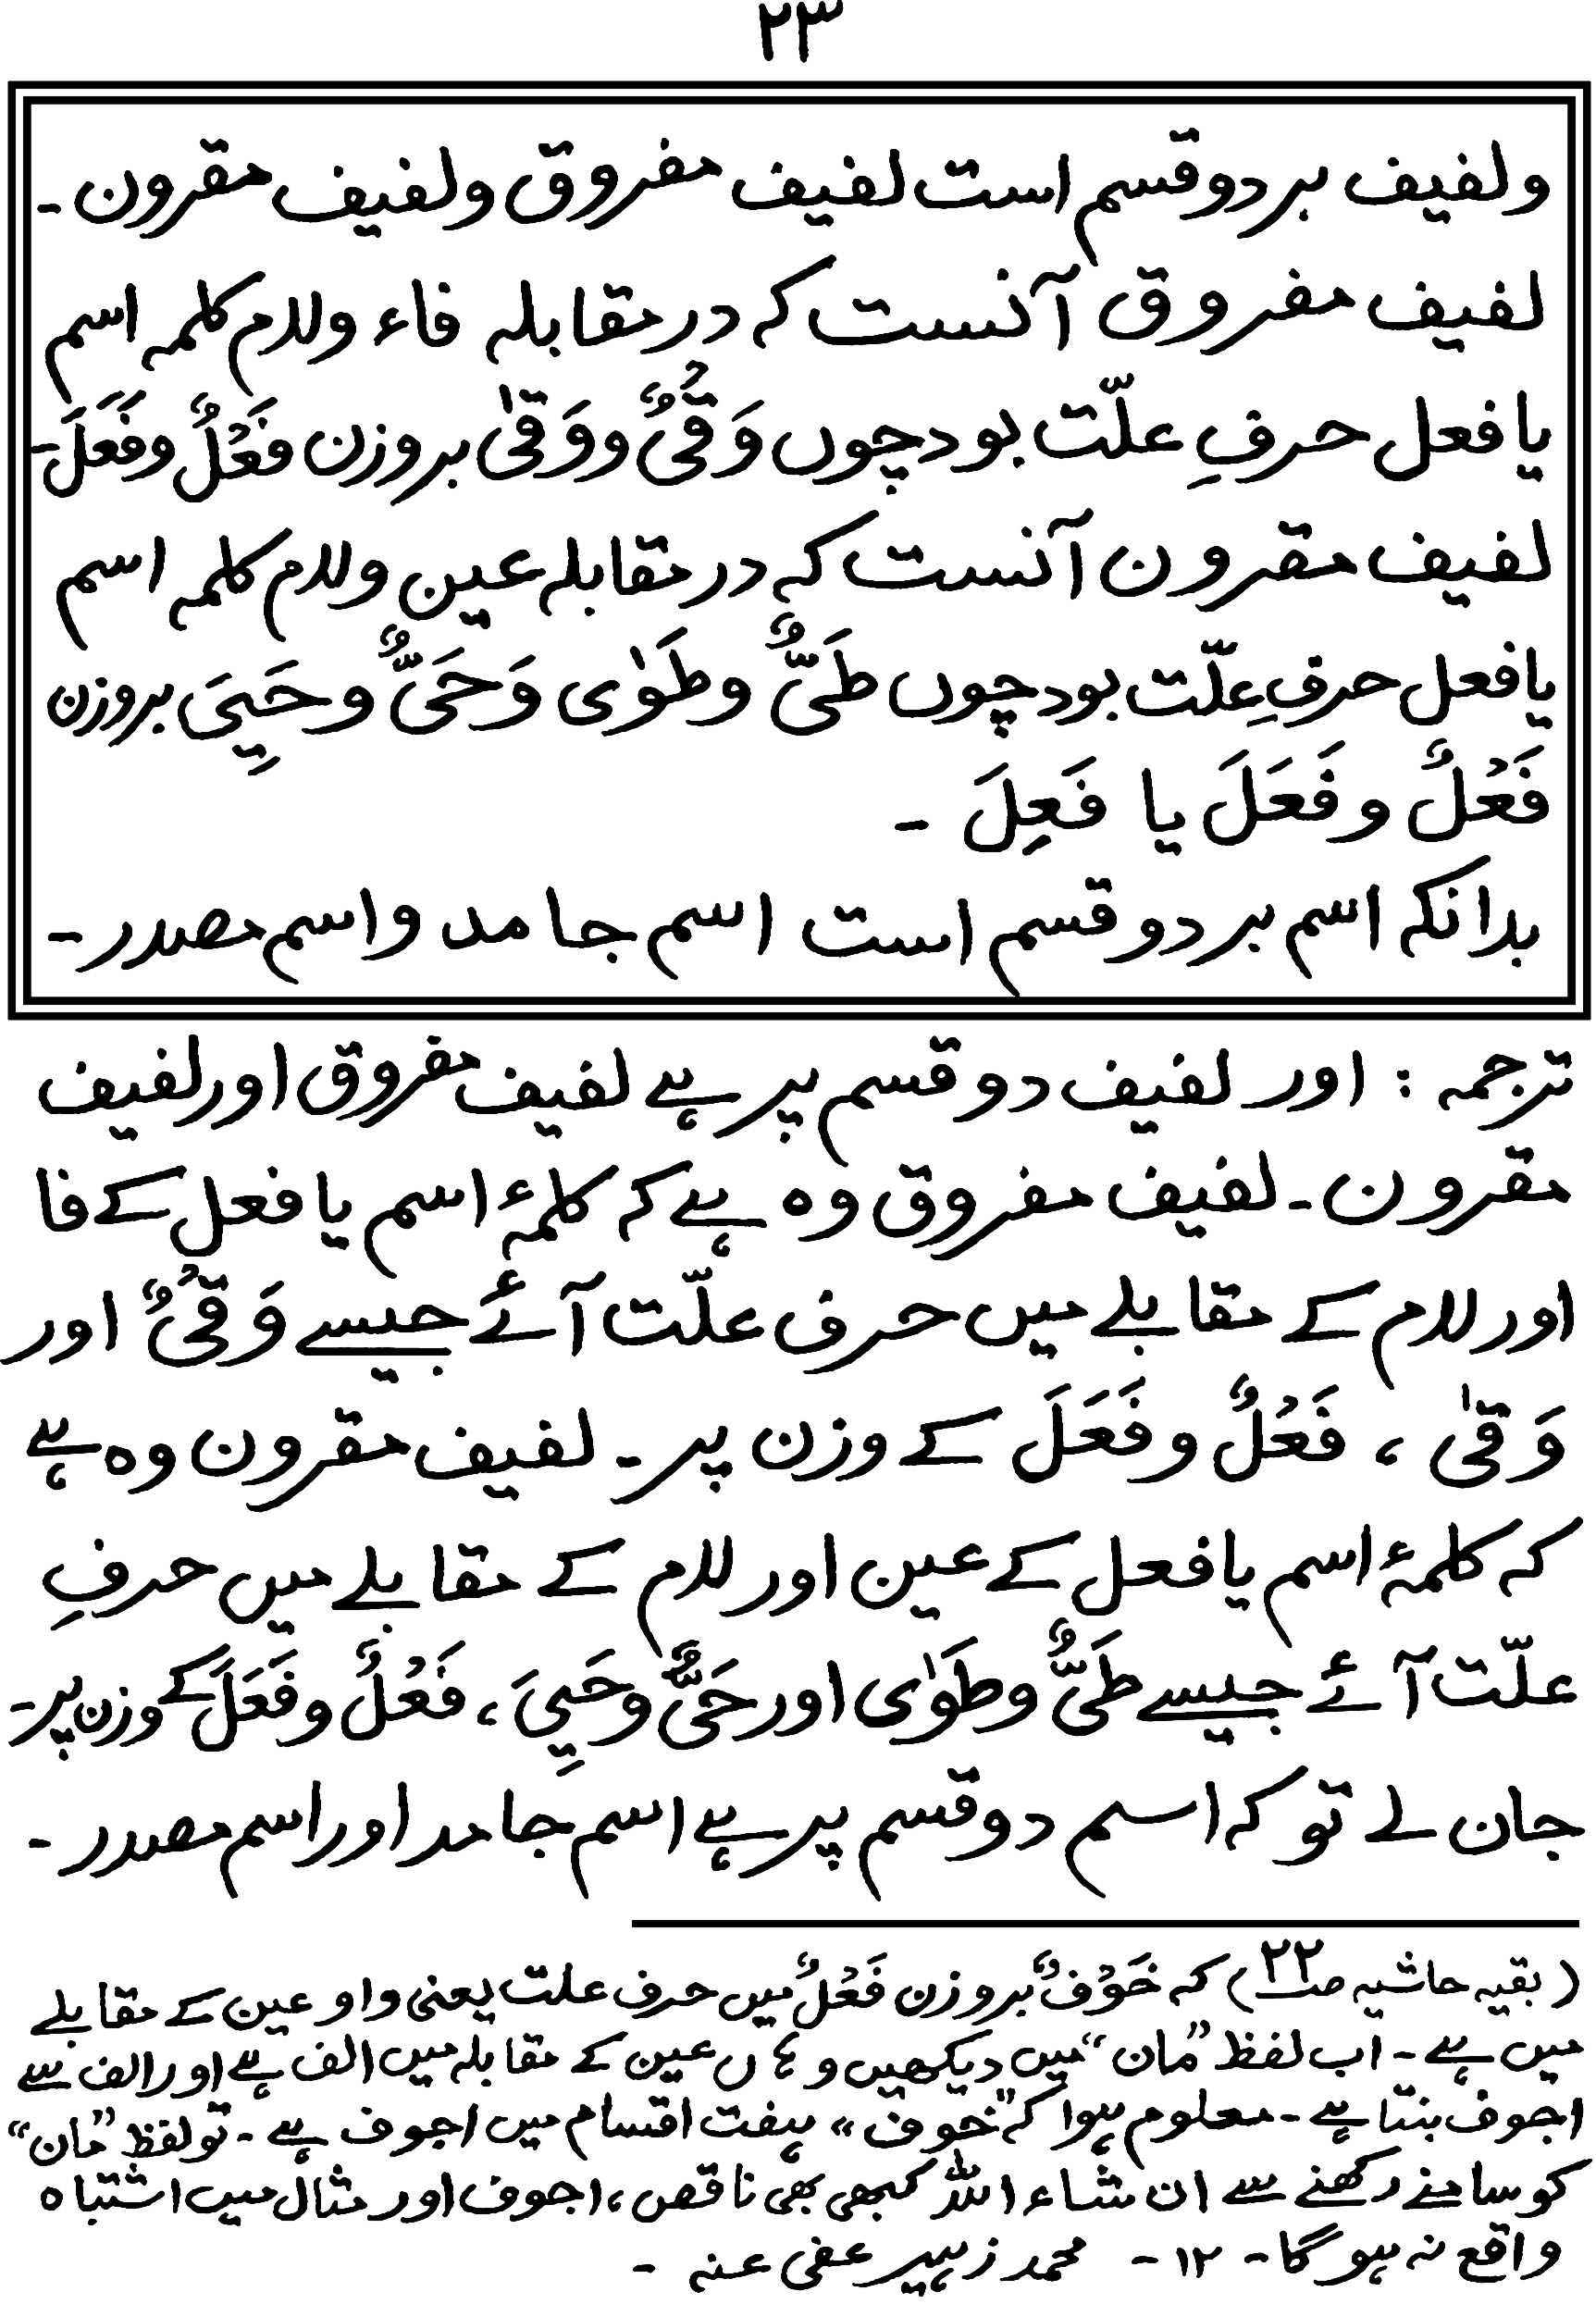 ۲۳
ولفیف بر دو قسم است لفیف مفروق ولفیف مقرون ۔
لفیف مفروق آنست کہ در مقابلہ فاء ولام کلمہ اسم
یا فعل حرفِ علّت بود چوں وَقْیٌ ووَقیٰ بروزن فَعْلٌ وفَعَلَ ۔
لفیف مقرون آنست کہ در مقابلہ عین ولام کلمہ اسم
یا فعل حرفِ عِلّت بود چوں طَیٌّ وطَوٰی وَحَیٌّ وحَیِیَ بروزن
فَعْلٌ وفَعَلَ یا فَعِلَ ۔
بدانکہ اسم بر دو قسم است اسم جامد واسم مصدر ۔
ترجمہ : اور لفیف دو قسم پر ہے لفیف مفروق اور لفیف
مقرون ۔ لفیف مفروق وہ ہے کہ کلمۂ اسم یا فعل کے فا
اور لام کے مقابلے میں حرف علّت آئے جیسے وَقْیٌ اور
وَقیٰ ، فَعْلٌ وفَعَلَ کے وزن پر ۔ لفیف مقرون وہ ہے
کہ کلمۂ اسم یا فعل کے عین اور لام کے مقابلے میں حرفِ
علّت آئے جیسے طَیٌّ وطَوٰی اور حَیٌّ وحَیِیَ ، فَعْلٌ وفَعَلَ کے وزن پر ۔
جان لے تو کہ اسم دو قسم پر ہے اسم جامد اور اسم مصدر ۔
( بقیہ حاشیہ صـ۲۲ ) کہ خَوْفٌ بروزن فَعْلٌ میں حرف علت یعنی واو عین کے مقابلے
میں ہے ۔ اب لفظ ”مان“ میں دیکھیں وہاں عین کے مقابلہ میں الف ہے اور الف سے
اجوف بنتا ہے ۔ معلوم ہوا کہ ”خوف“ ہفت اقسام میں اجوف ہے ۔ تو لفظ ”مان“
کو سامنے رکھنے سے ان شاء اللہ کبھی بھی ناقص ، اجوف اور مثال میں اشتباہ
واقع نہ ہوگا ۔ ۱۲ ۔ محمد زہیر عفی عنہ ۔